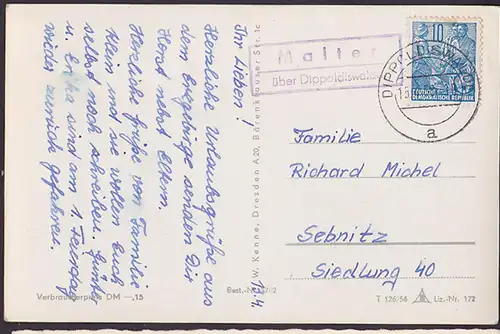 Ihr Lieben!
Herzliche Urlaubsgrüße aus
dem Erzgebirge senden Dir
Horst nebst Eltern.
Herzliche Grüße von Familie
Klein, und sie wollen Euch
selbst noch schreiben. Günt
u. Erika sind am 1. Feiertag
wieder zurück gefahren.
17.4
Verbraucherpreis DM —,15
W. Kenne, Dresden A20, Bärenklauser Str. 1c
Best.-Nr.
Malter
über Dippoldiswalde
DIPPOLDISWALDE
a
10
DEUTSCHE
DEMOKRATISCHE REPUBLIK
Familie
Richard Michel
Sebnitz
Siedlung 40
T 126/56 Liz.-Nr. 172